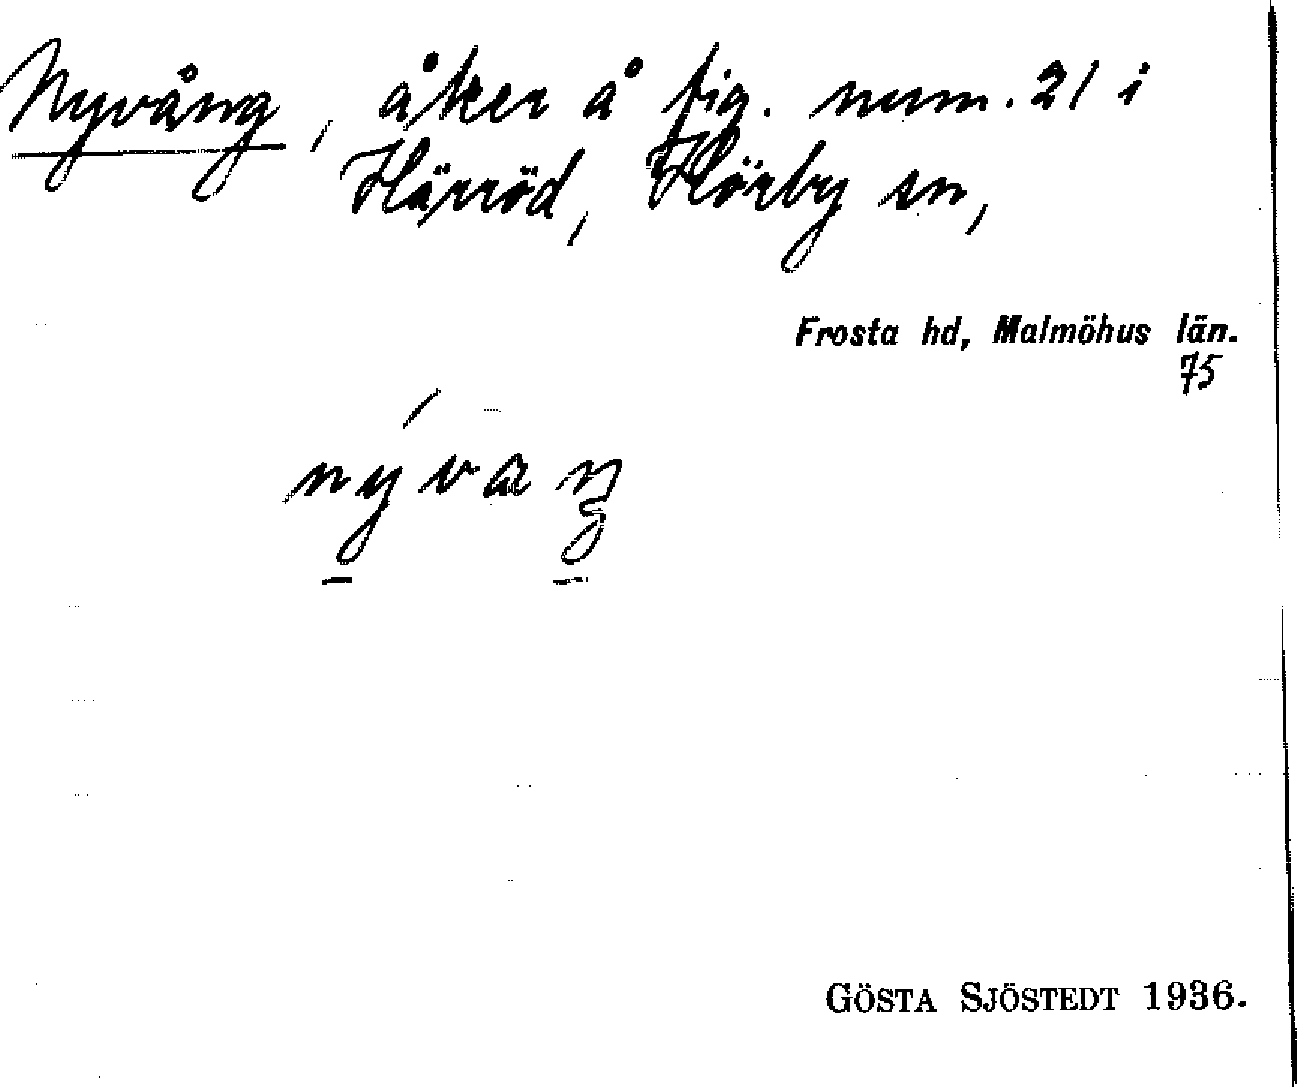 Nyvång, åker å fig. num. 21 i
Härröd, Hörby sn,
Frosta hd, Malmöhus län.
75
nývaŋ
GÖSTA SJÖSTEDT 1936.